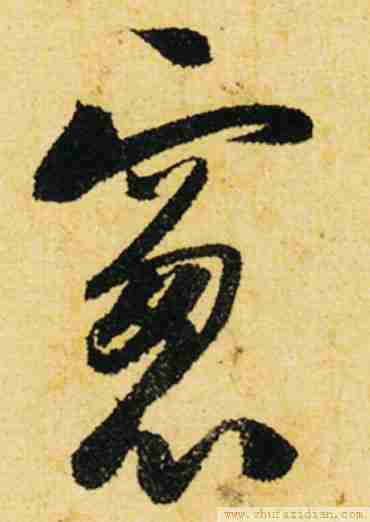 窻
www.shufazidian.com